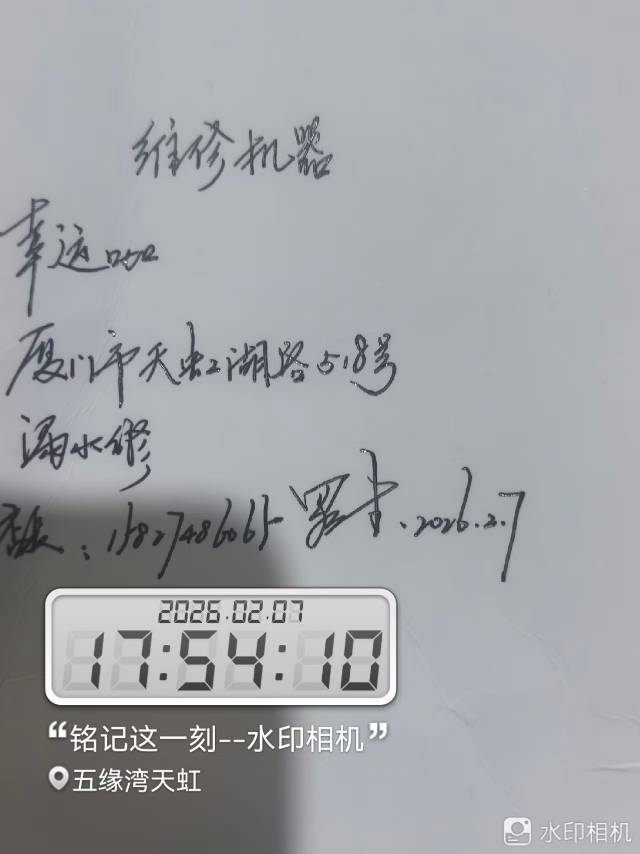 维修机器
幸运咖
厦门市天虹湖路518号
漏水修
:15827486065 罗 .2026.2.7
2026.02.07
17:54:10
“铭记这一刻--水印相机”
五缘湾天虹
水印相机